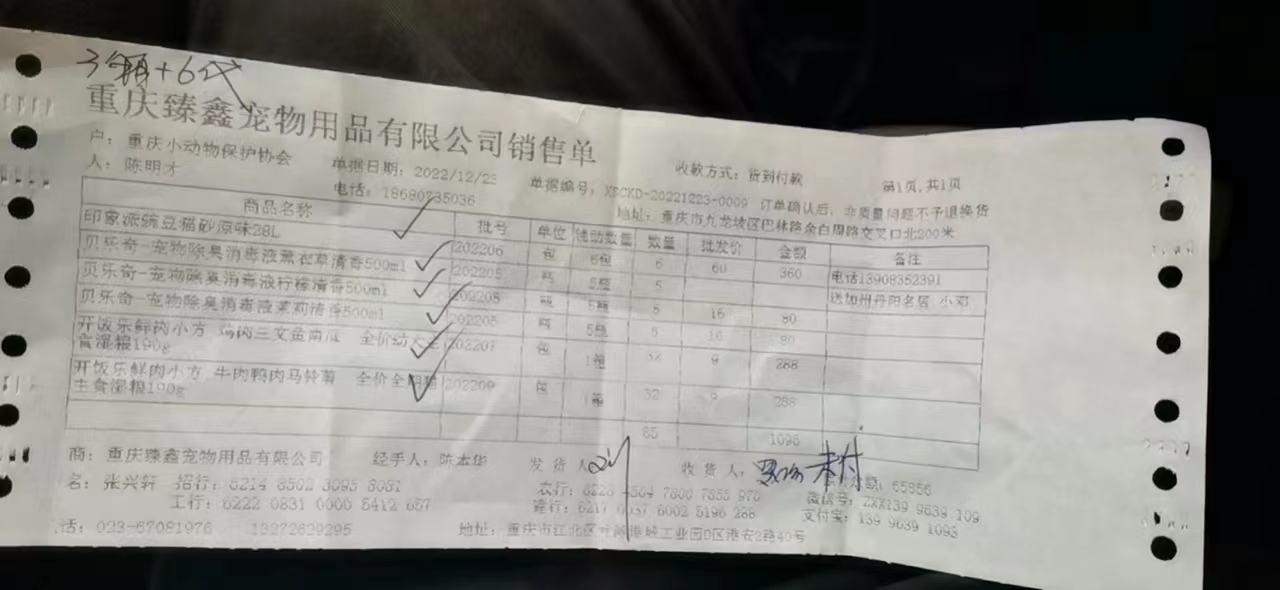 3箱+6代
重庆臻鑫宠物用品有限公司销售单
户：重庆小动物保护协会 单据日期：2022/12/23 单据编号：XSCKD-20221223-0009 收款方式：货到付款 第1页,共1页
人：陈明才 电话：18680735036 地址：重庆市九龙坡区巴林路余白周路交叉口北200米 订单确认后，非质量问题不予退换货
商品名称 批号 单位 辅助数量 数量 批发价 金额 备注
印象派豌豆猫砂原味28L 包 6包 6 60 360 电话13908352391
贝乐奇-宠物除臭消毒液薰衣草清香500ml 202206 瓶 5瓶 5 送加州丹阳名居 小邓
贝乐奇-宠物除臭消毒液柠檬清香500ml 202205 瓶 5瓶 5 16 80
贝乐奇-宠物除臭消毒液茉莉清香500ml 202205 瓶 5瓶 5 16 80
开饭乐鲜肉小方 鸡肉三文鱼南瓜 全价幼犬主食湿粮190g 202207 包 1箱 32 9 288
开饭乐鲜肉小方 牛肉鸭肉马铃薯 全价全期猫主食湿粮190g 202209 包 1箱 32 9 288
85 1096
商：重庆臻鑫宠物用品有限公司 经手人：陈本华 发货人 收货人： 未付 65856
名：张兴轩 招行：6214 8502 3095 8081 农行：6228 4504 7800 7855 970 微信号：ZXX139 9639 109
工行：6222 0831 0000 5412 657 建行：6217 0037 6002 5196 288 支付宝：139 9639 1093
话：023-67091976 13272629295 地址：重庆市江北区 港城工业园D区港安2路40号